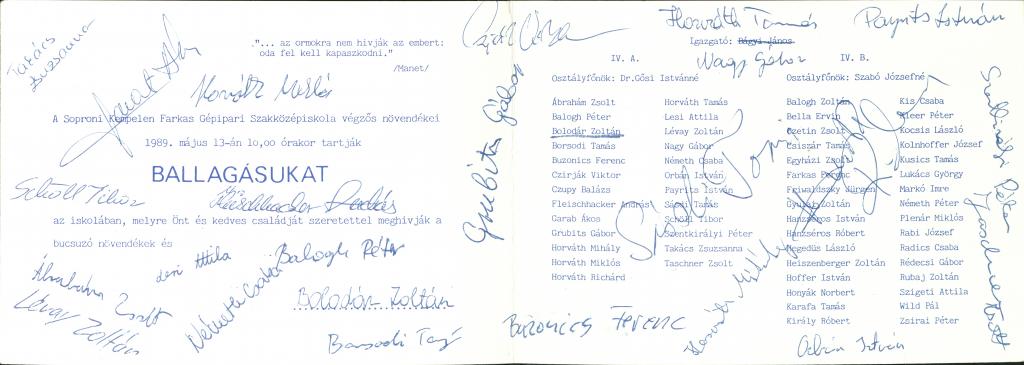 Takács
Zsuzsanna
"... az ormokra nem hivják az embert:
oda fel kell kapaszkodni."
/Manet/
Horváth Miklós
A Soproni Kempelen Farkas Gépipari Szakközépiskola végzős növendékei
1989. május 13-án 10,00 órakor tartják
BALLAGÁSUKAT
Schöll Tibor
Fleischhacker András
az iskolában, melyre Önt és kedves családját szeretettel meghivják a
bucsuzó növendékek és
Ábrahám Zsolt
Lévay Zoltán
Lesi Attila
Németh Csaba
Balogh Péter
Bolodár Zoltán
Borsodi Tamás
Grubits Gábor
Horváth Tamás
Payrits István
Igazgató: Bágyi János
Nagy Gábor
IV. A.
Osztályfőnök: Dr.Gősi Istvánné
Ábrahám Zsolt
Balogh Péter
Bolodár Zoltán
Borsodi Tamás
Buzonics Ferenc
Czirják Viktor
Czupy Balázs
Fleischhacker András
Garab Ákos
Grubits Gábor
Horváth Mihály
Horváth Miklós
Horváth Richard
Horváth Tamás
Lesi Attila
Lévay Zoltán
Nagy Gábor
Németh Csaba
Orbán István
Payrits István
Sándi Tamás
Schöll Tibor
Szentkirályi Péter
Takács Zsuzsanna
Taschner Zsolt
IV. B.
Osztályfőnök: Szabó Józsefné
Balogh Zoltán
Bella Ervin
Czetin Zsolt
Csiszár Tamás
Egyházi Zsolt
Farkas Ferenc
Frivaldszky Jürgen
Gyulai Zoltán
Hanzséros István
Hanzséros Róbert
Hegedüs László
Heiszenberger Zoltán
Hoffer István
Honyák Norbert
Karafa Tamás
Király Róbert
Kis Csaba
Kleer Péter
Kocsis László
Kolnhoffer József
Kusics Tamás
Lukács György
Markó Imre
Németh Péter
Plenár Miklós
Rabi József
Radics Csaba
Rédecsi Gábor
Rubaj Zoltán
Szigeti Attila
Wild Pál
Zsirai Péter
Buzonics Ferenc
Horváth Mihály
Orbán István
Szentkirályi Péter
Taschner Zsolt